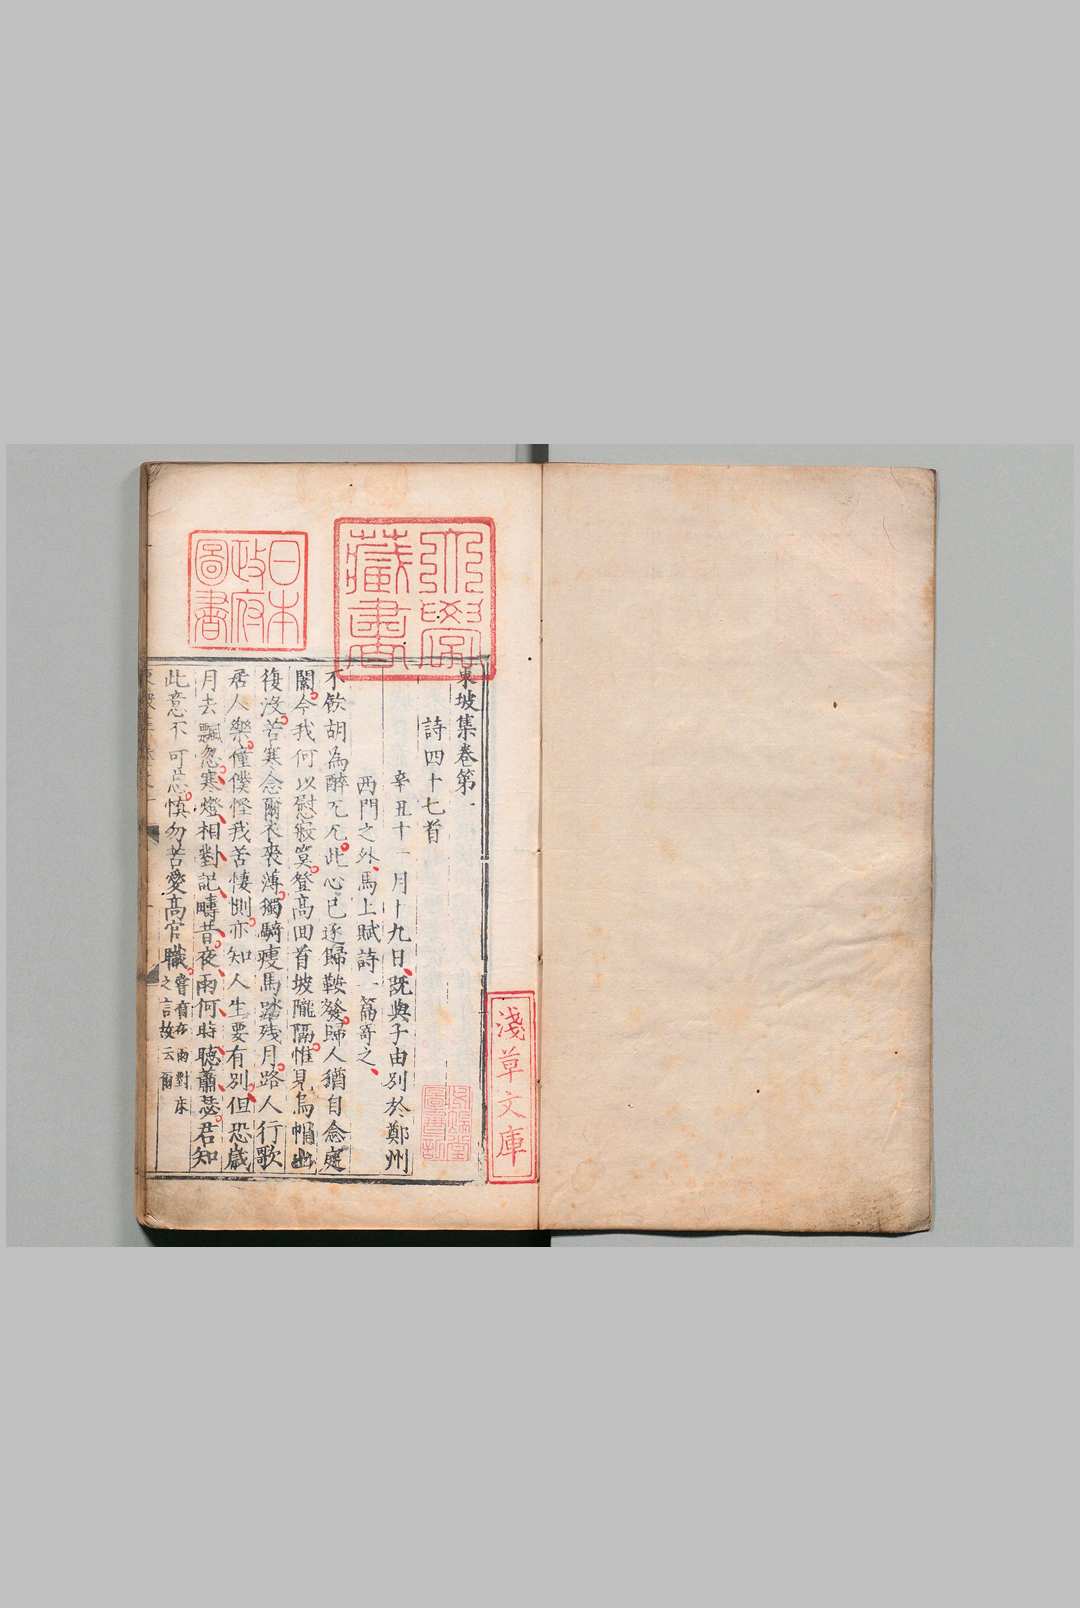 東坡集卷第一
詩四十七首
辛丑十一月十九日既與子由別於鄭州
西門之外馬上賦詩一篇寄之
不飲胡為醉兀兀此心已逐歸鞍發歸人猶自念庭
闈今我何以慰寂寞登高回首坡隴隔惟見烏帽出
復沒苦寒念爾衣裘薄獨騎瘦馬踏殘月路人行歌
居人樂僮僕怪我苦悽惻亦知人生要有別但恐歲
月去飄忽寒燈相對記疇昔夜雨何時聽蕭瑟君知
此意不可忘慎勿苦愛高官職嘗有夜雨對床之言故云爾
淺草文庫
大學藏書
日本政府圖書